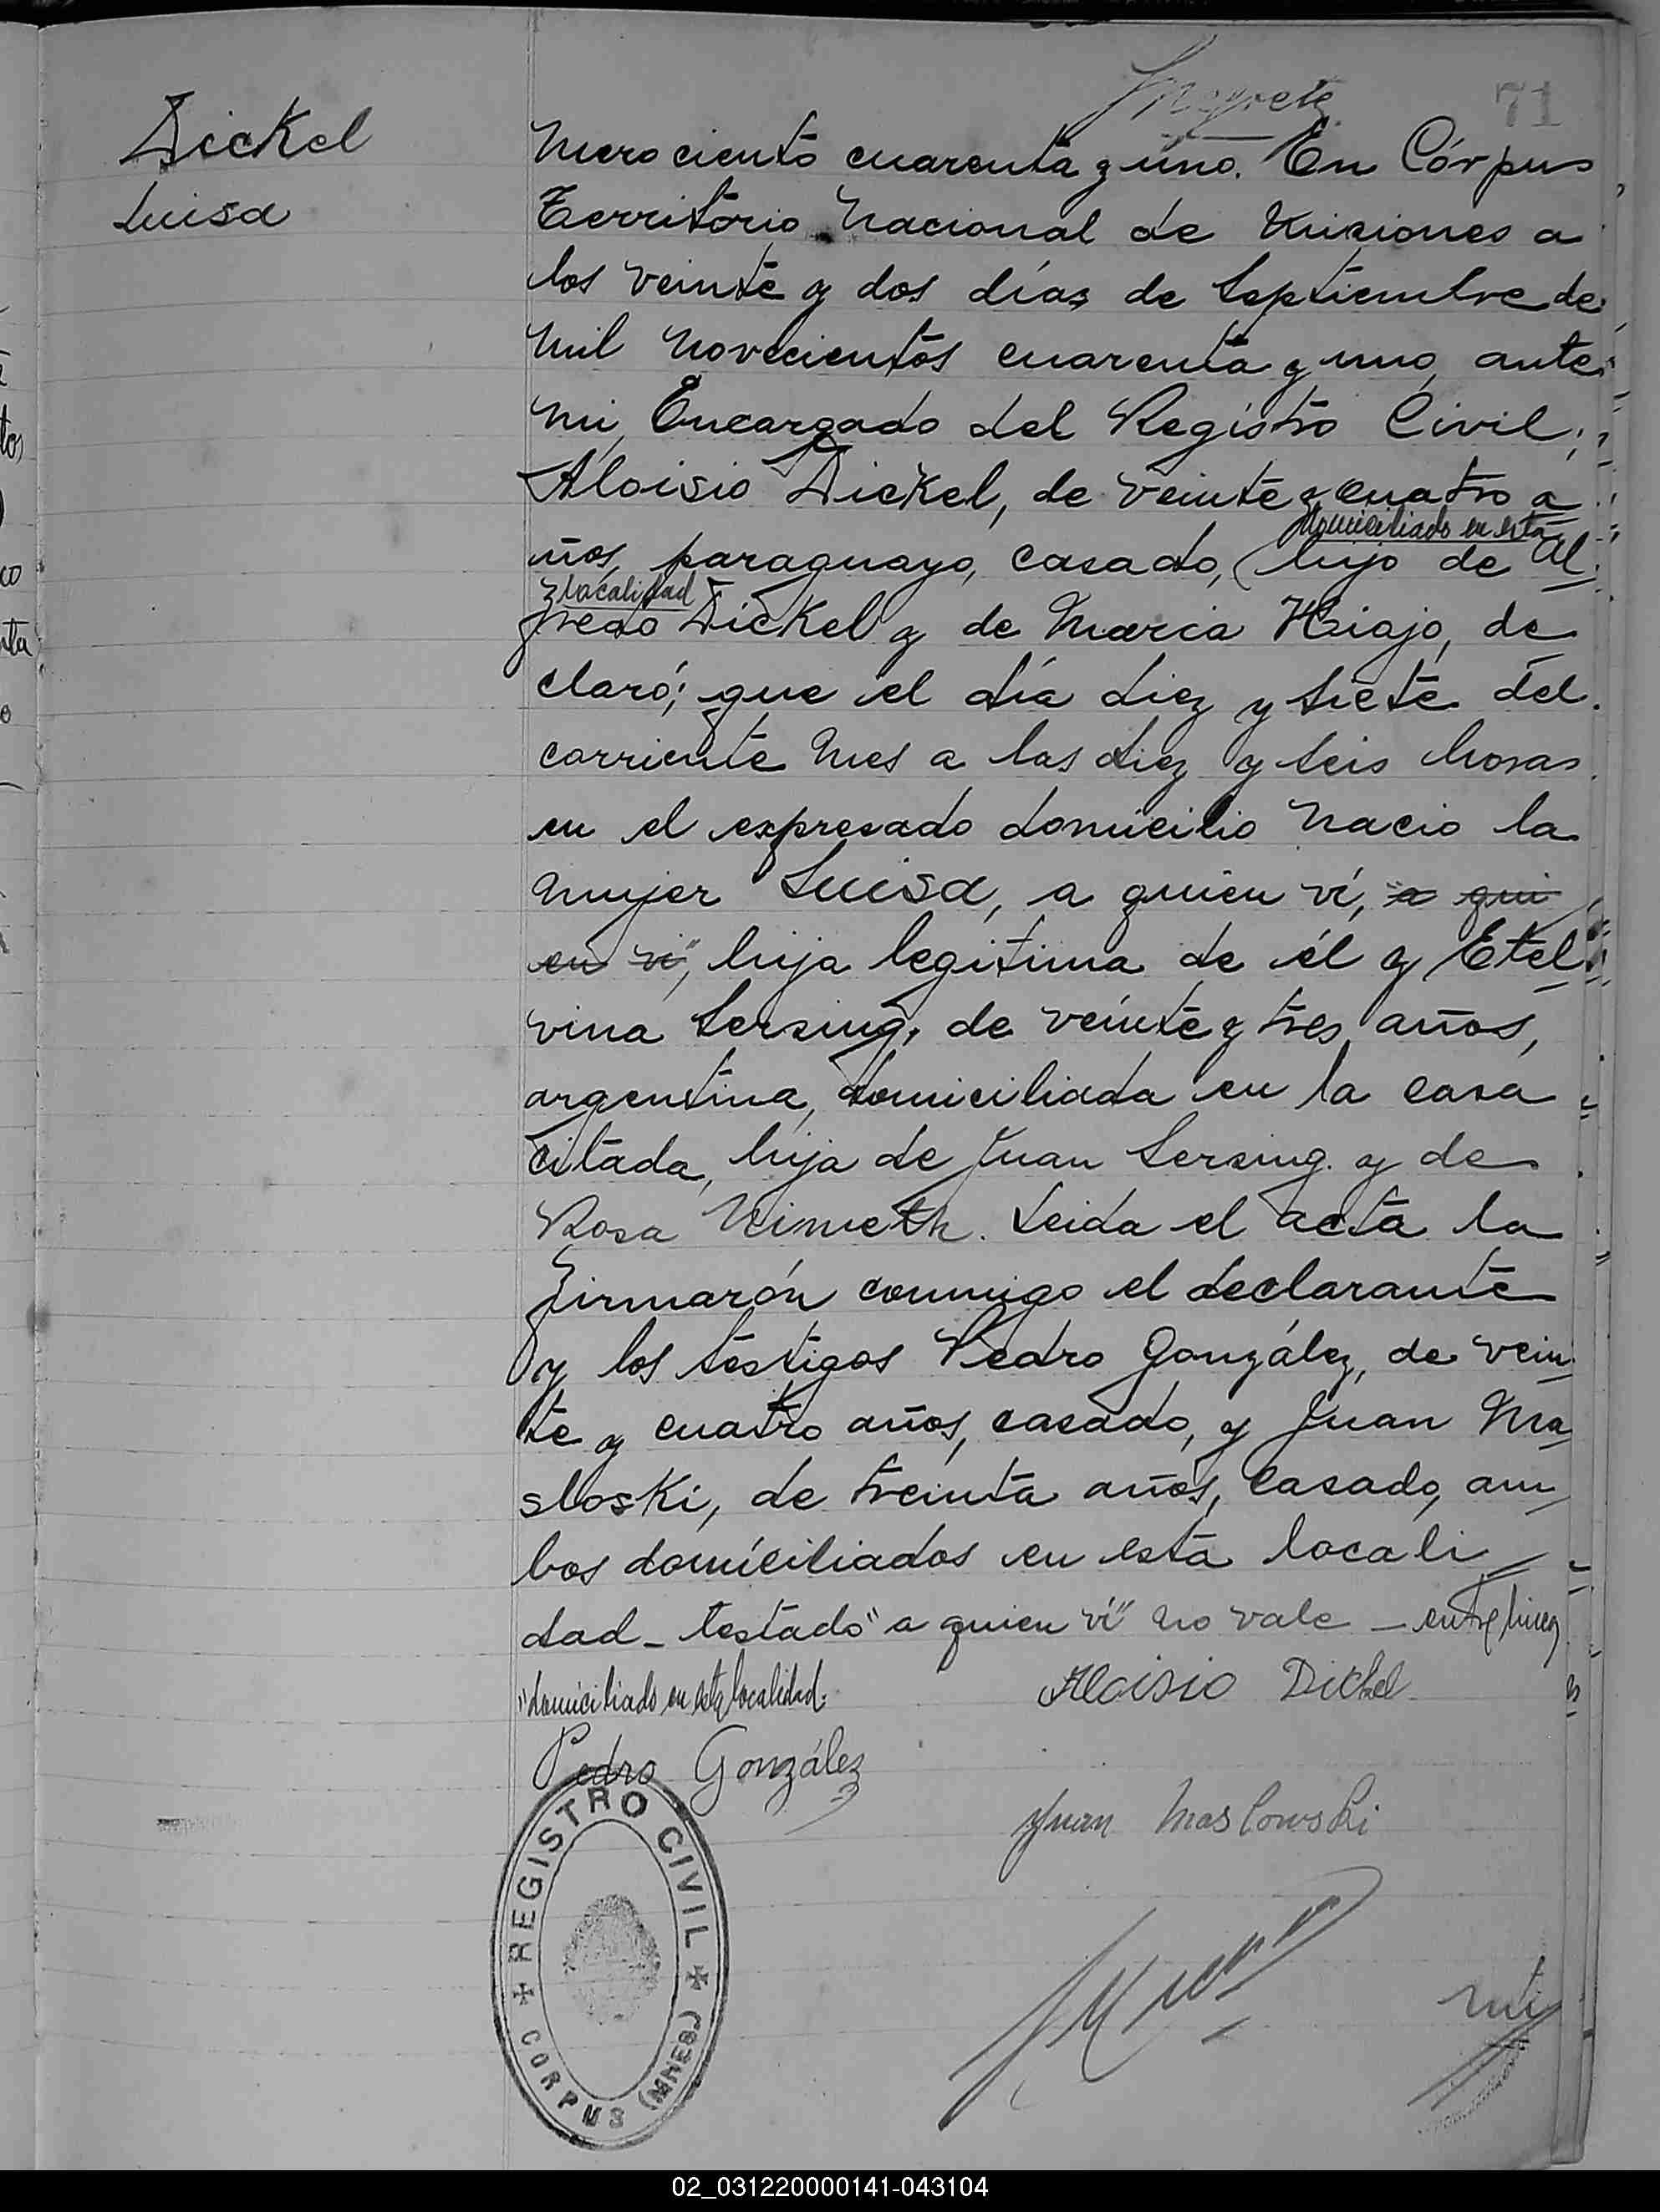 71
Dickel
Luisa
Número ciento cuarenta y uno. En Córpus
Territorio Nacional de Misiones a
los veinte y dos días de Septiembre de
mil novecientos cuarenta y uno, ante
mi, Encargado del Registro Civil;
Aloisio Dickel, de veinte y cuatro a
domiciliado en esta
ños, paraguayo, casado, (hijo de Al
localidad
fredo Dickel y de Maria Hiajo, de
claró; que el día diez y siete del
corriente mes a las diez y seis horas
en el expresado domicilio nacio la
mujer Luisa, a quien ví, "a qui
en vi", hija legitima de él y Etel
vina Sersing, de veinte y tres años,
argentina, domiciliada en la casa
citada, hija de Juan Sersing y de
Rosa Nimeth. Leida el acta la
firmarón conmigo el declarante
y los testigos Pedro González, de vein
te y cuatro años, casado, y Juan Ma
sloski, de treinta años, casado, am
bos domiciliados en esta locali
dad_ testado "a quien ví" no vale _ entre linea
"domiciliado en esta localidad:
Aloisio Dickel
Pedro González
Juan Maslowski
REGISTRO CIVIL
CORPUS (MNES.)
02_031220000141-043104